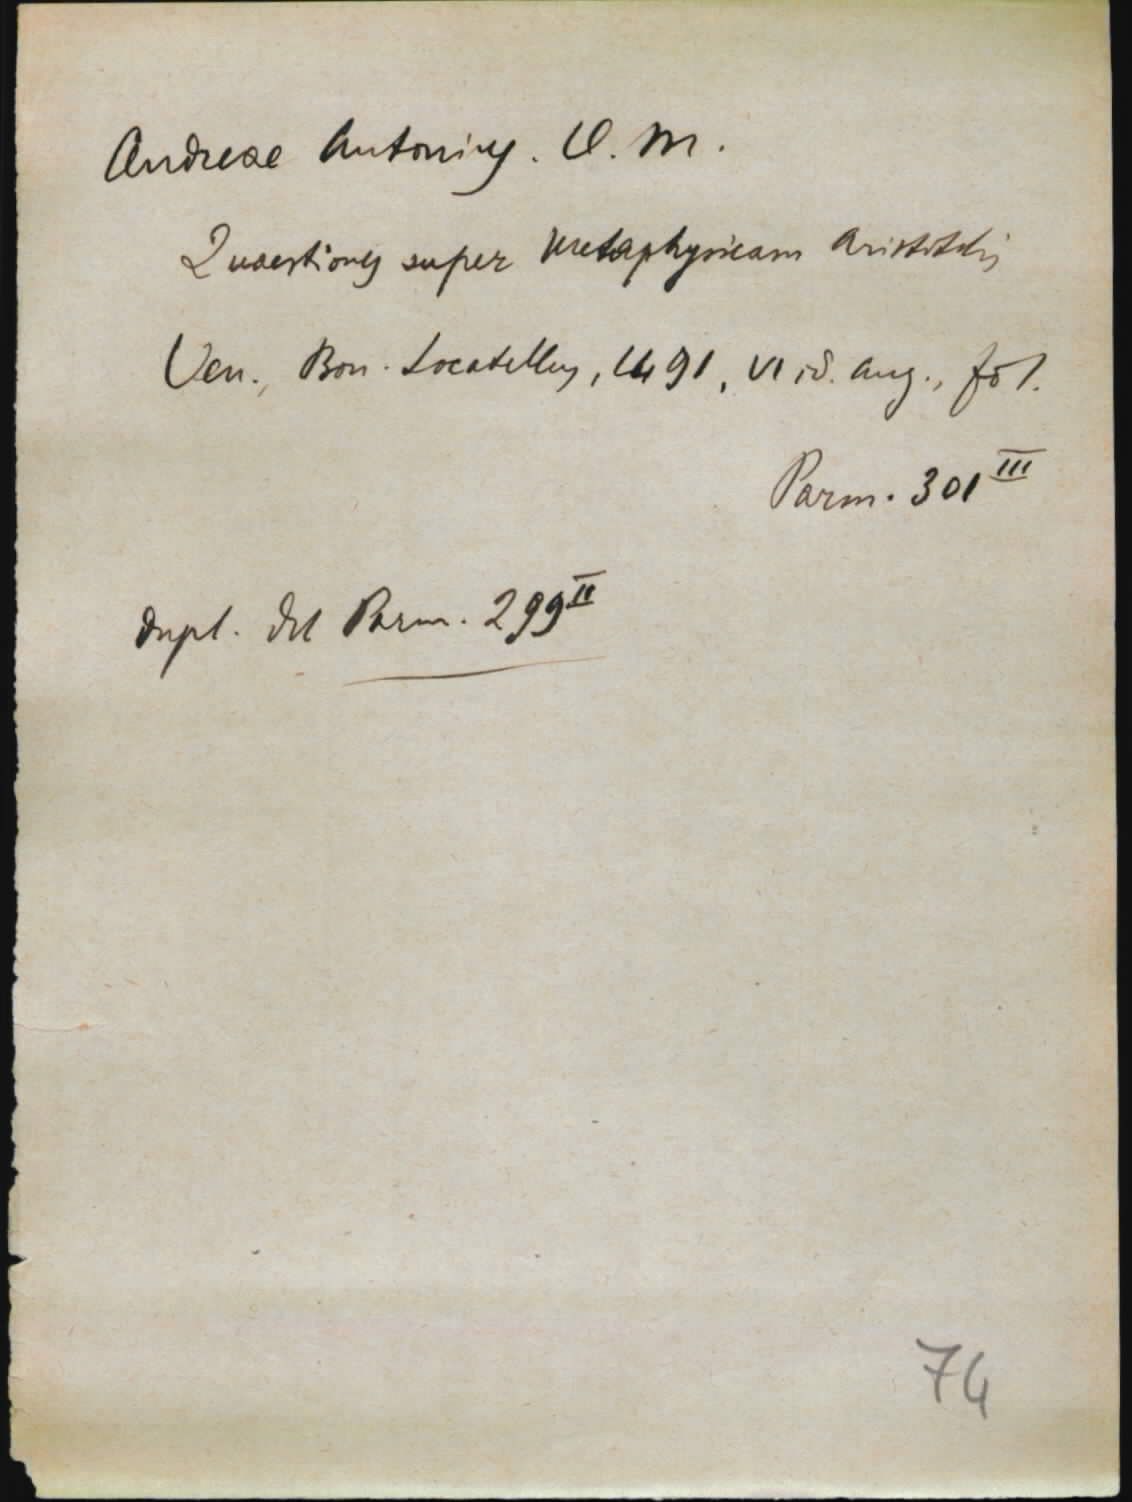 Andreae Antonius. O. M.
Quaestiones super Metaphysicam Aristotelis
Ven., Bon. Locatellus, 1491, VI id. Aug., fol.
Parm. 301 III
dupl. Parm. 299 II
74